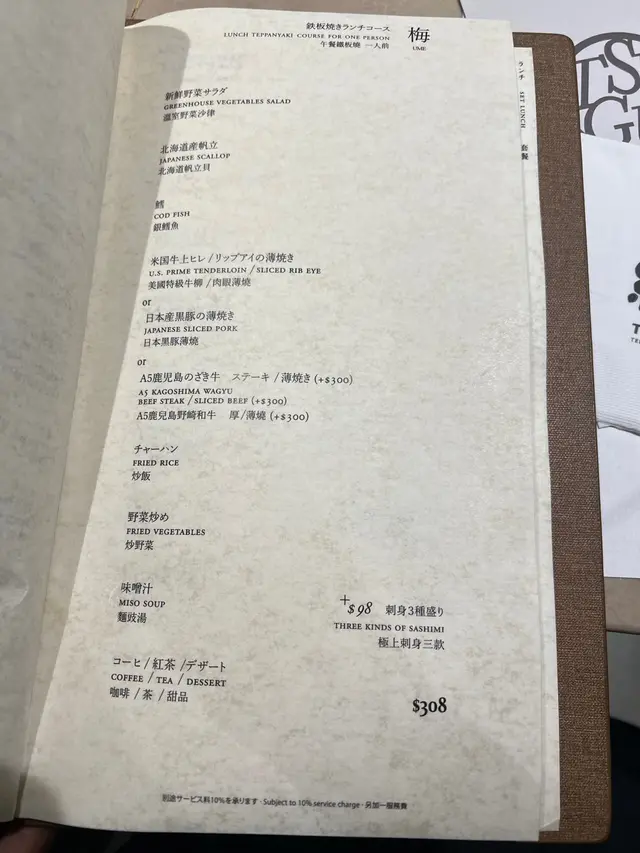 鉄板焼きランチコース
LUNCH TEPPANYAKI COURSE FOR ONE PERSON
午餐鐵板燒 一人前
梅
UME
新鮮野菜サラダ
GREENHOUSE VEGETABLES SALAD
溫室野菜沙律
北海道産帆立
JAPANESE SCALLOP
北海道帆立貝
鱈
COD FISH
銀鱈魚
米国牛上ヒレ/リップアイの薄焼き
U.S. PRIME TENDERLOIN / SLICED RIB EYE
美國特級牛柳 / 肉眼薄燒
or
日本産黒豚の薄焼き
JAPANESE SLICED PORK
日本黑豚薄燒
or
A5鹿児島のざき牛 ステーキ / 薄焼き (+$300)
A5 KAGOSHIMA WAGYU
BEEF STEAK / SLICED BEEF (+$300)
A5鹿兒島野崎和牛 厚/薄燒 (+$300)
チャーハン
FRIED RICE
炒飯
野菜炒め
FRIED VEGETABLES
炒野菜
味噌汁
MISO SOUP
麵豉湯
+$98 刺身3種盛り
THREE KINDS OF SASHIMI
極上刺身三款
コーヒ / 紅茶 / デザート
COFFEE / TEA / DESSERT
咖啡 / 茶 / 甜品
$308
別途サービス料10%を承ります · Subject to 10% service charge · 另加一服務費
ランチ SET LUNCH 套餐